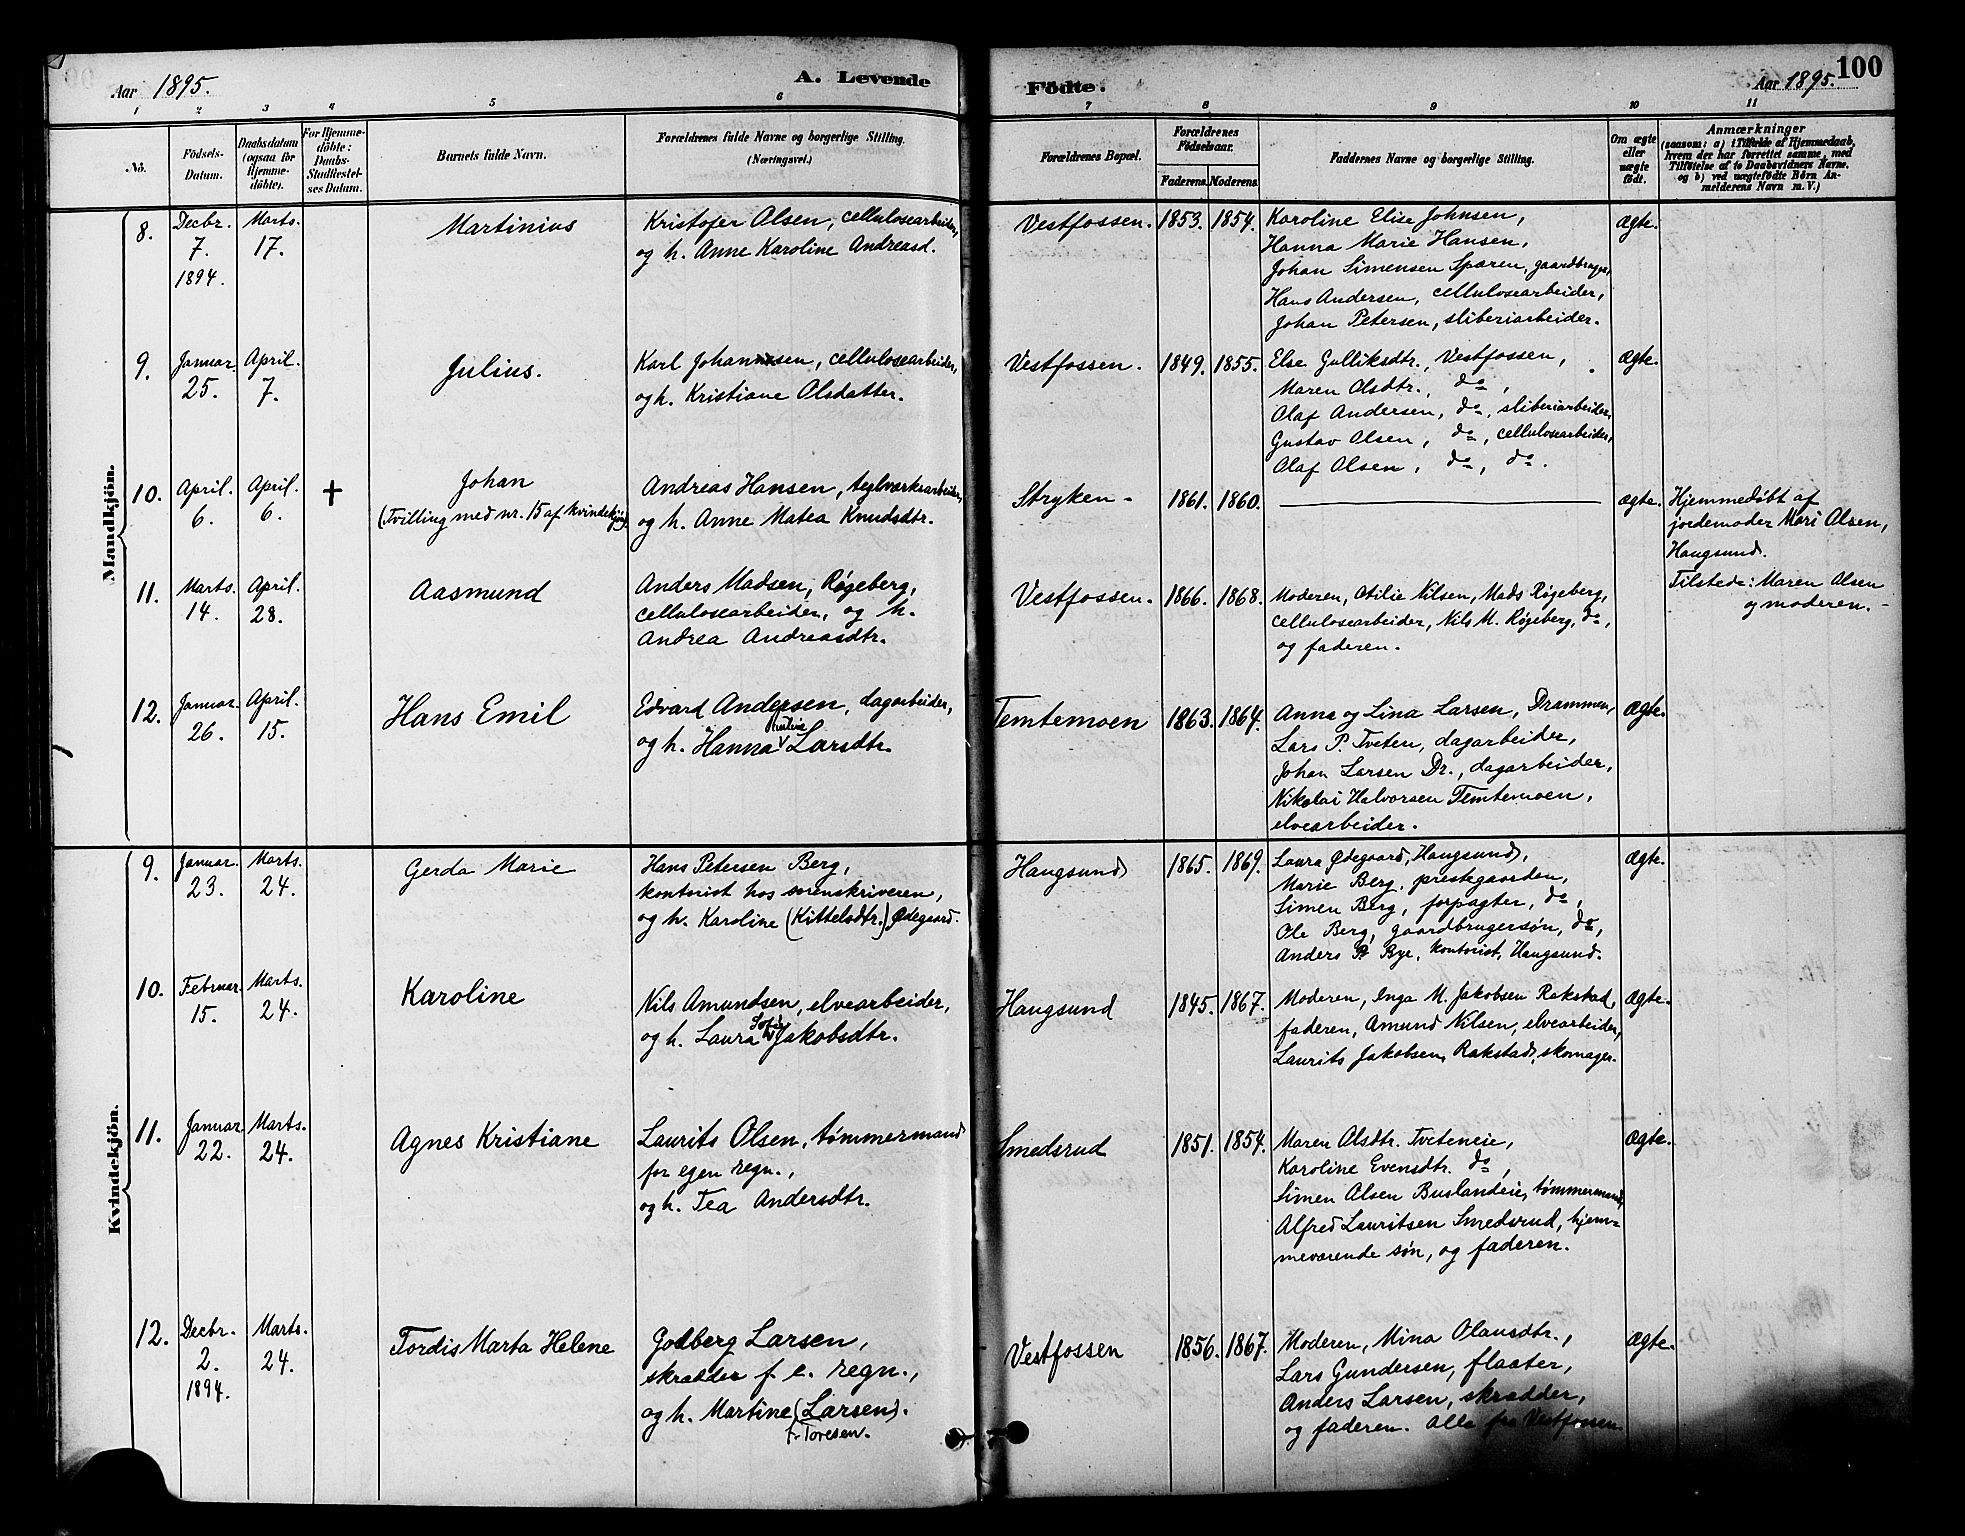 Aar 1895.
A. Levende
Fødte.
Aar 1895.
100
1 2 3 4 5 6 7 8 9 10 11
No.
Fødsels-
Datum.
Daabsdatum
(ogsaa for
Hjemme-
døbte).
For Hjemme-
døbte:
Daabs-
Stadfæstel-
ses Datum.
Barnets fulde Navn.
Forældrenes fulde Navne og borgerlige Stilling.
(Næringsvei.)
Forældrenes Bopæl.
Forældrenes
Fødselsaar.
Faderens. Moderens.
Faddernes Navne og borgerlige Stilling.
Om ægte
eller
uægte
født.
Anmærkninger
(saasom: a) i Tilfælde af Hjemmedaab,
hvem der har forrettet samme, med
Tilføielse af to Daabsvidners Navne.
og b) ved uægtefødte Børn An-
melderens Navn m. V.)
Mandkjøn.
8.
Decbr.
7.
1894.
Marts.
17.
Martinius
Kristofer Olsen, cellulosearbeider,
og h. Anne Karoline Andreasd.
Vestfossen. 1853. 1854.
Karoline Elise Johnsen,
Hanna Marie Hansen,
Johan Simensen Sparen, gaardbruger,
Hans Andersen, cellulosearbeider,
Johan Petersen, sliberiarbeider.
Ægte.
9.
Januar
25.
April.
7.
Julius.
Karl Johansen, cellulosearbeider,
og h. Kristiane Olsdatter.
Vestfossen. 1849. 1855.
Else Gulliksdtr., Vestfossen,
Maren Olsdtr., do,
Olaf Andersen, do, sliberiarbeider,
Gustav Olsen, do, cellulosearbeider,
Olaf Olsen, do, do.
Ægte.
10.
April.
6.
April.
6.
+
Johan
(Tvilling med nr. 15 af kvindekjøn)
Andreas Hansen, teglværksarbeider,
og h. Anne Matea Knudsdtr.
Stryken - 1861. 1860.
ægte.
Hjemmedøbt af
jordemoder Mari Olsen,
Haugsund.
Tilstede: Maren Olsen
og moderen. -
11.
Marts.
14.
April.
28.
Aasmund
Anders Madsen, Røgeberg,
cellulosearbeider, og h.
Andrea Andreasdtr.
Vestfossen. 1866. 1868.
Moderen, Otilie Nilsen, Mads Røgeberg,
cellulosearbeider, Nils M. Røgeberg, do,
og faderen.
12.
Januar.
26.
April.
15.
Hans Emil
Edvard Andersen, dagarbeider,
og h. Hanna Larsdtr.
Temtemoen 1863. 1864.
Anna og Lina Larsen, Drammen,
Lars P. Tveten, dagarbeider,
Johan Larsen Dr., dagarbeider,
Nikolai Halvorsen Temtemoen,
elvearbeider.
Ægte.
Kvindekjøn.
9.
Januar.
23.
Marts.
24.
Gerda Marie
Hans Petersen Berg,
kontorist hos sorenskriveren,
og h. Karoline (Kittelsdtr.) Ødegaard.
Haugsund 1865. 1869.
Laura Ødegaard, Haugsund,
Marie Berg, prestegaarden,
Simen Berg, forpagter, do,
Ole Berg, gaardbrugersøn, do,
Anders Bye, kontorist, Haugsund.
Ægte.
10.
Februar.
15.
Marts.
24.
Karoline
Nils Amundsen, elvearbeider,
og h. Laura Sofie Jakobsdtr.
Haugsund 1845. 1867.
Moderen, Inga M. Jakobsen Rakstad,
faderen, Amund Nilsen, elvearbeider,
Laurits Jakobsen Rakstad, skomager.
Ægte.
11.
Januar.
22.
Marts.
24.
Agnes Kristiane
Laurits Olsen, tømmermand
for egen regn.,
og h. Tea Andersdtr.
Smedsrud 1851. 1854.
Maren Olsdtr. Tveteneie,
Karoline Evensdtr. do,
Simen Olsen Buslandeie, tømmermand,
Alfred Lauritsen Smedsrud, hjem-
meværende søn, og faderen.
Ægte.
12.
Decbr.
2.
1894.
Marts.
24.
Tordis Marta Helene
Godberg Larsen,
skrædder f. e. regn.,
og h. Martine (Larsen).
f. Toresen.
Vestfossen 1856. 1867.
Moderen, Mina Olausdtr.,
Lars Gundersen, flaater,
Anders Larsen, skrædder,
og faderen. Alle fra Vestfossen.
Ægte.